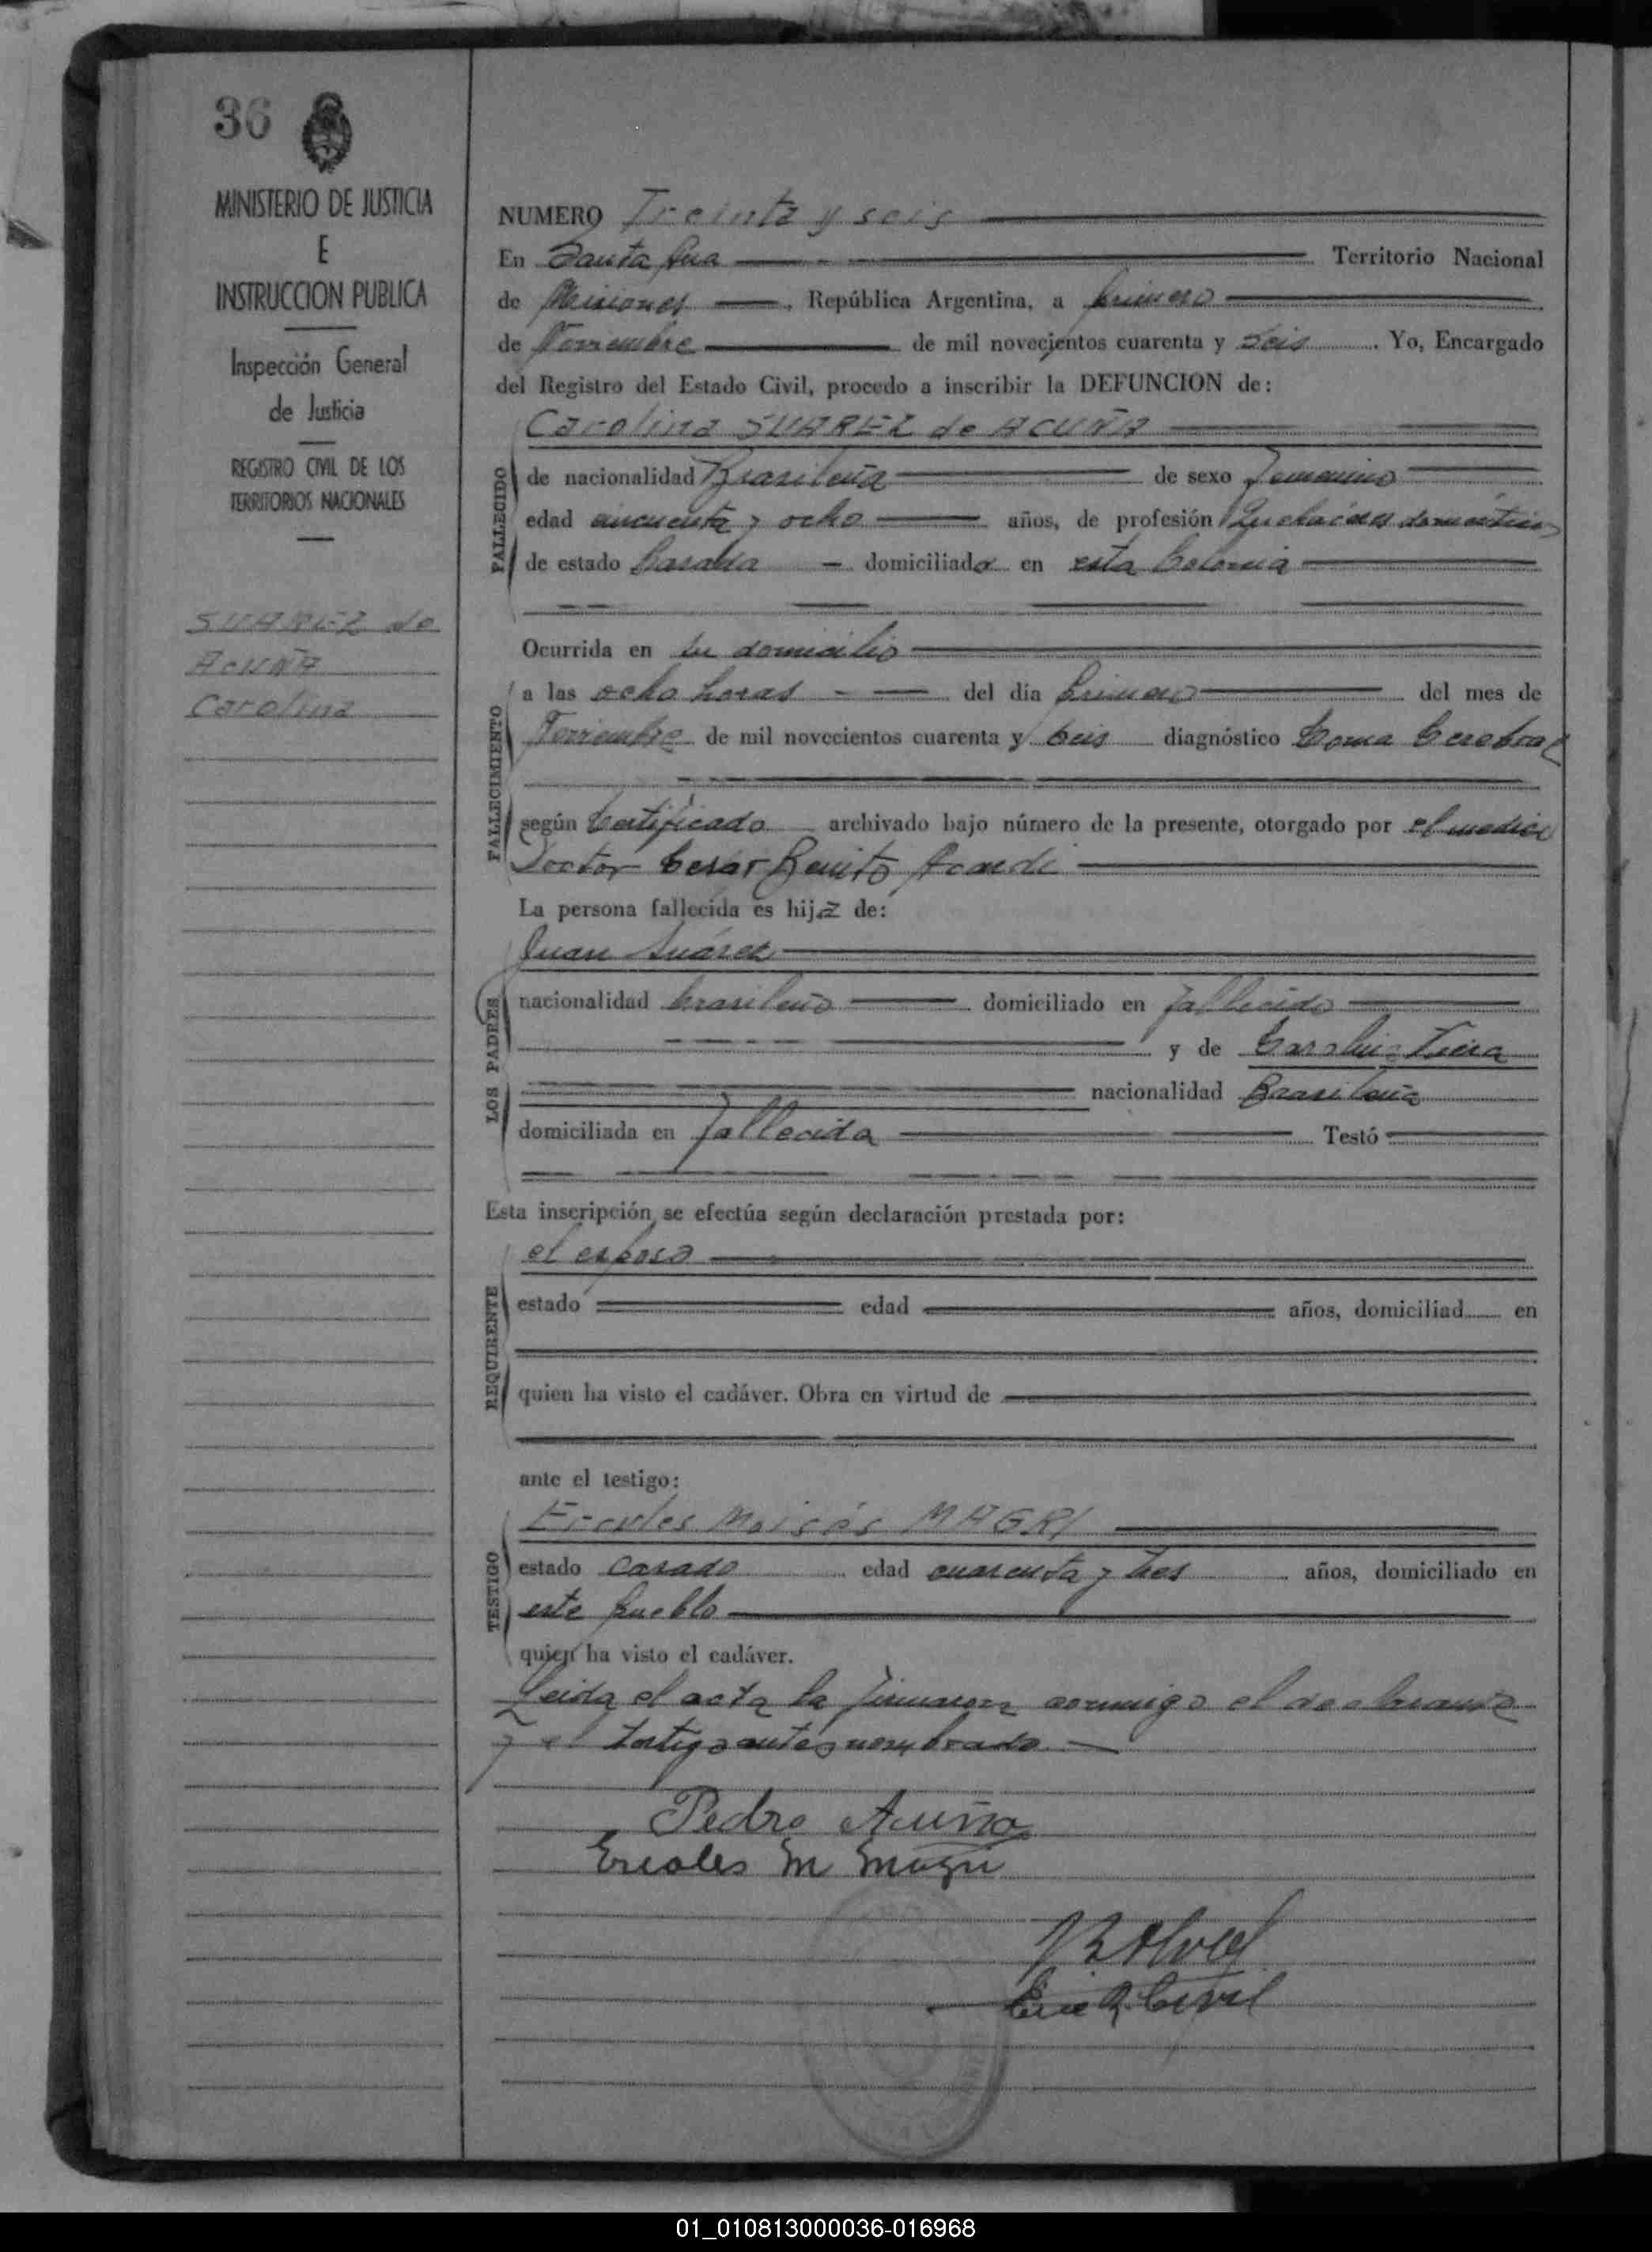 36
MINISTERIO DE JUSTICIA
E
INSTRUCCION PUBLICA
Inspección General
de Justicia
REGISTRO CIVIL DE LOS
TERRITORIOS NACIONALES
SUAREZ de
ACUÑA
Carolina
NUMERO Treinta y seis
En Santa Ana Territorio Nacional
de Misiones, República Argentina, a primero
de Noviembre de mil novecientos cuarenta y seis. Yo, Encargado
del Registro del Estado Civil, procedo a inscribir la DEFUNCION de:
Carolina SUAREZ de ACUÑA
FALLECIDO
de nacionalidad Brasileña de sexo femenino
edad cincuenta y ocho años, de profesión Quehaceres domésticos
de estado Casada domiciliada en esta Colonia
Ocurrida en su domicilio
FALLECIMIENTO
a las ocho horas del día primero del mes de
Noviembre de mil novecientos cuarenta y seis diagnóstico Coma Cerebral
según Certificado archivado bajo número de la presente, otorgado por el medico
Doctor Cesar Benito
La persona fallecida es hija de:
Juan Suárez
LOS PADRES
nacionalidad brasileño domiciliado en fallecido
y de Carolina
nacionalidad Brasileña
domiciliada en fallecida Testó
Esta inscripción se efectúa según declaración prestada por:
el esposo
REQUIRENTE
estado edad años, domiciliad en
quien ha visto el cadáver. Obra en virtud de
ante el testigo:
Ercoles Moisés MAGRI
TESTIGO
estado casado edad cuarenta y tres años, domiciliado en
este pueblo
quien ha visto el cadáver.
Leida el acta la firmaron conmigo el declarante
y el testigo antes nombrado.
Pedro Acuña
Ercoles M Magri
Enc R. Civil
01_010813000036-016968